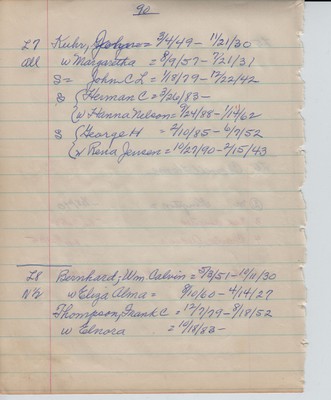 90
L7 Kuhr, = 3/4/49 - 11/21/30
all w Margaretha = 8/9/57 - 7/21/31
S = John C L = 1/18/79 - 12/22/42
S { Herman C = 3/26/83 -
{ w Hanna Nelson = 9/24/88 - 1/14/62
S { George H = 2/10/85 - 6/7/52
{ w Rena Jensen = 10/27/90 - 2/15/43
L8 Bernhard, Wm. Calvin = 5/3/51 - 10/11/30
N 1/2 w Eliza Alma = 8/10/60 - 4/14/27
Thompson, Frank C = 12/7/79 - 8/18/52
w Elnora = 10/18/83 -